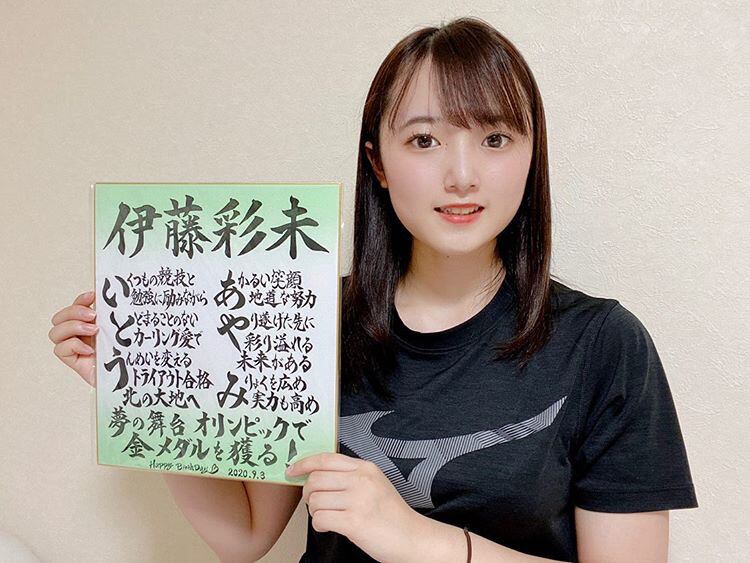 伊藤彩未
いくつもの競技と
勉強に励みながら
とどまることのない
カーリング愛で
うんめいを変える
トライアウト合格
北の大地へ
あかるい笑顔
地道な努力
やり遂げた先に
彩り溢れる
未来がある
みりょくを広め
実力も高め
夢の舞台 オリンピックで
金メダルを獲る!
Happy BirthDay 2020.9.3